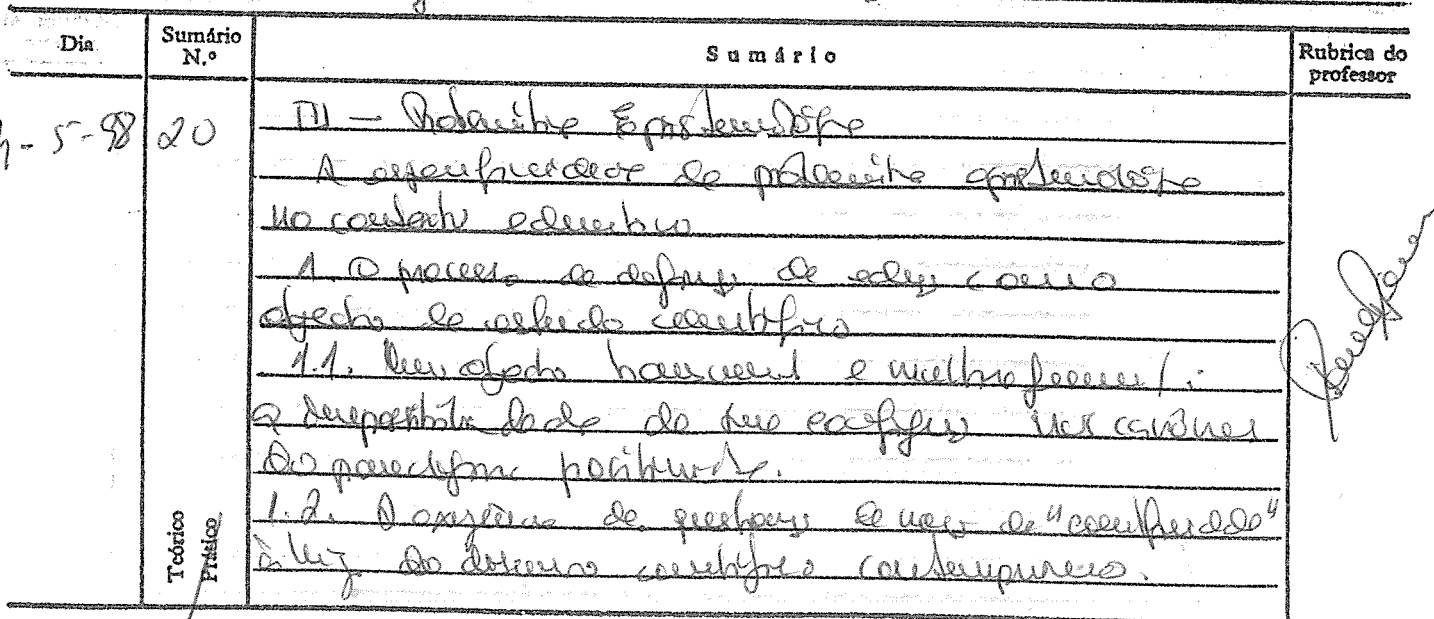 Dia
Sumário N.º
Sumário
Rubrica do professor
- 5-98
20
III - Problemática Epistemológica
A especificidade da problemática epistemológica
no contexto educativo
1. O processo de definição da educação como
objecto de estudo científico
1.1. Um objecto
a impossibilidade da sua nos cânones
do paradigma positivista.
1.2. A exigência de de "cientificidade"
à luz do discurso científico contemporâneo.
Teórico
Prático